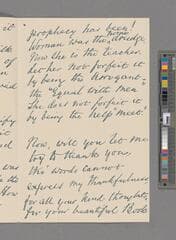 prophecy has been!
Woman was the home drudge
Now she is the teacher.
Let her not forfeit it
by being the arrogant
the "Equal with Men"
She does not forfeit it,
by being the help meet.
Now, will you let me
try to thank you,
tho' words cannot
express my thankfulness
for all your kind thoughts,
for your beautiful Book